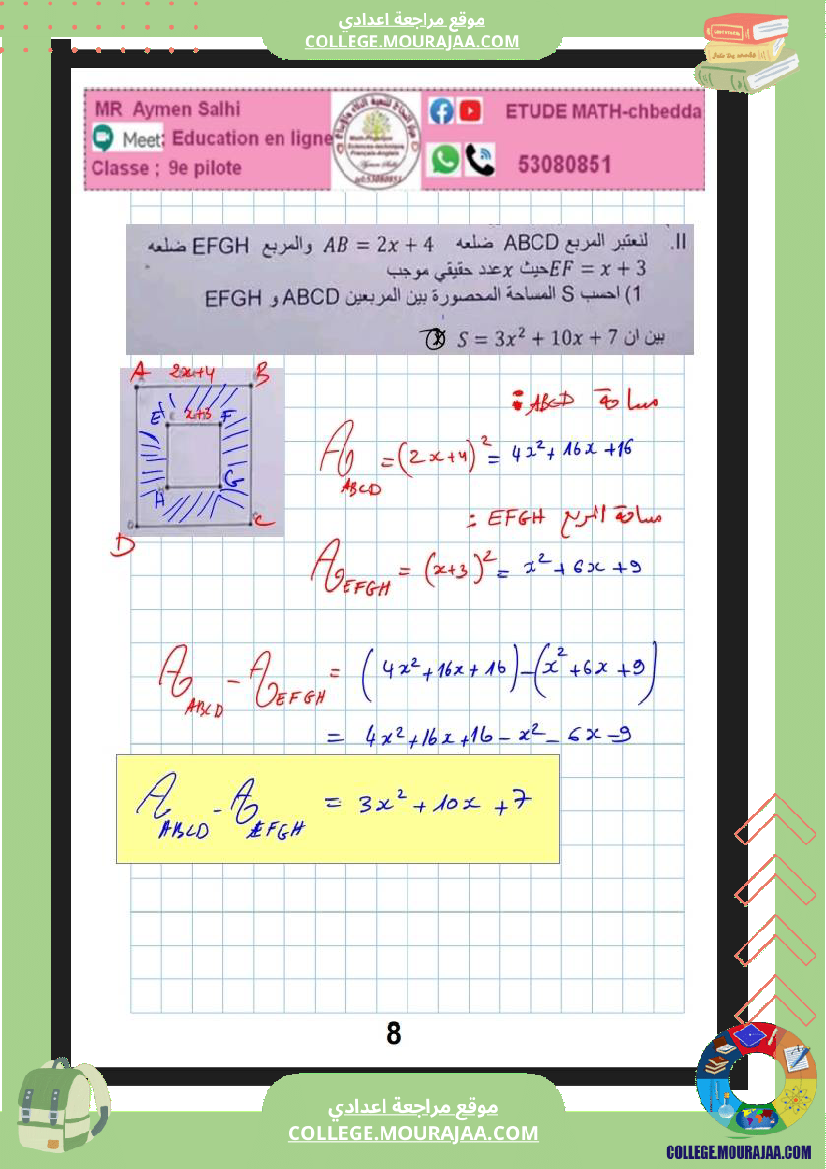 موقع مراجعة اعدادي
COLLEGE.MOURAJAA.COM
MR Aymen Salhi
Meet: Education en ligne
Classe ; 9e pilote
ETUDE MATH-chbedda
53080851
II. لنعتبر المربع ABCD ضلعه AB = 2x + 4 والمربع EFGH ضلعه
EF = x + 3 حيث x عدد حقيقي موجب
1) احسب S المساحة المحصورة بين المربعين ABCD و EFGH
بين ان S = 3x² + 10x + 7
A 2x+4 B
E x+3 F
H G
D C
مساحة ABCD :
A ABCD = (2x+4)² = 4x² + 16x + 16
مساحة المربع EFGH :
A EFGH = (x+3)² = x² + 6x + 9
A ABCD - A EFGH = (4x² + 16x + 16) - (x² + 6x + 9)
= 4x² + 16x + 16 - x² - 6x - 9
A ABCD - A EFGH = 3x² + 10x + 7
8
موقع مراجعة اعدادي
COLLEGE.MOURAJAA.COM
COLLEGE.MOURAJAA.COM